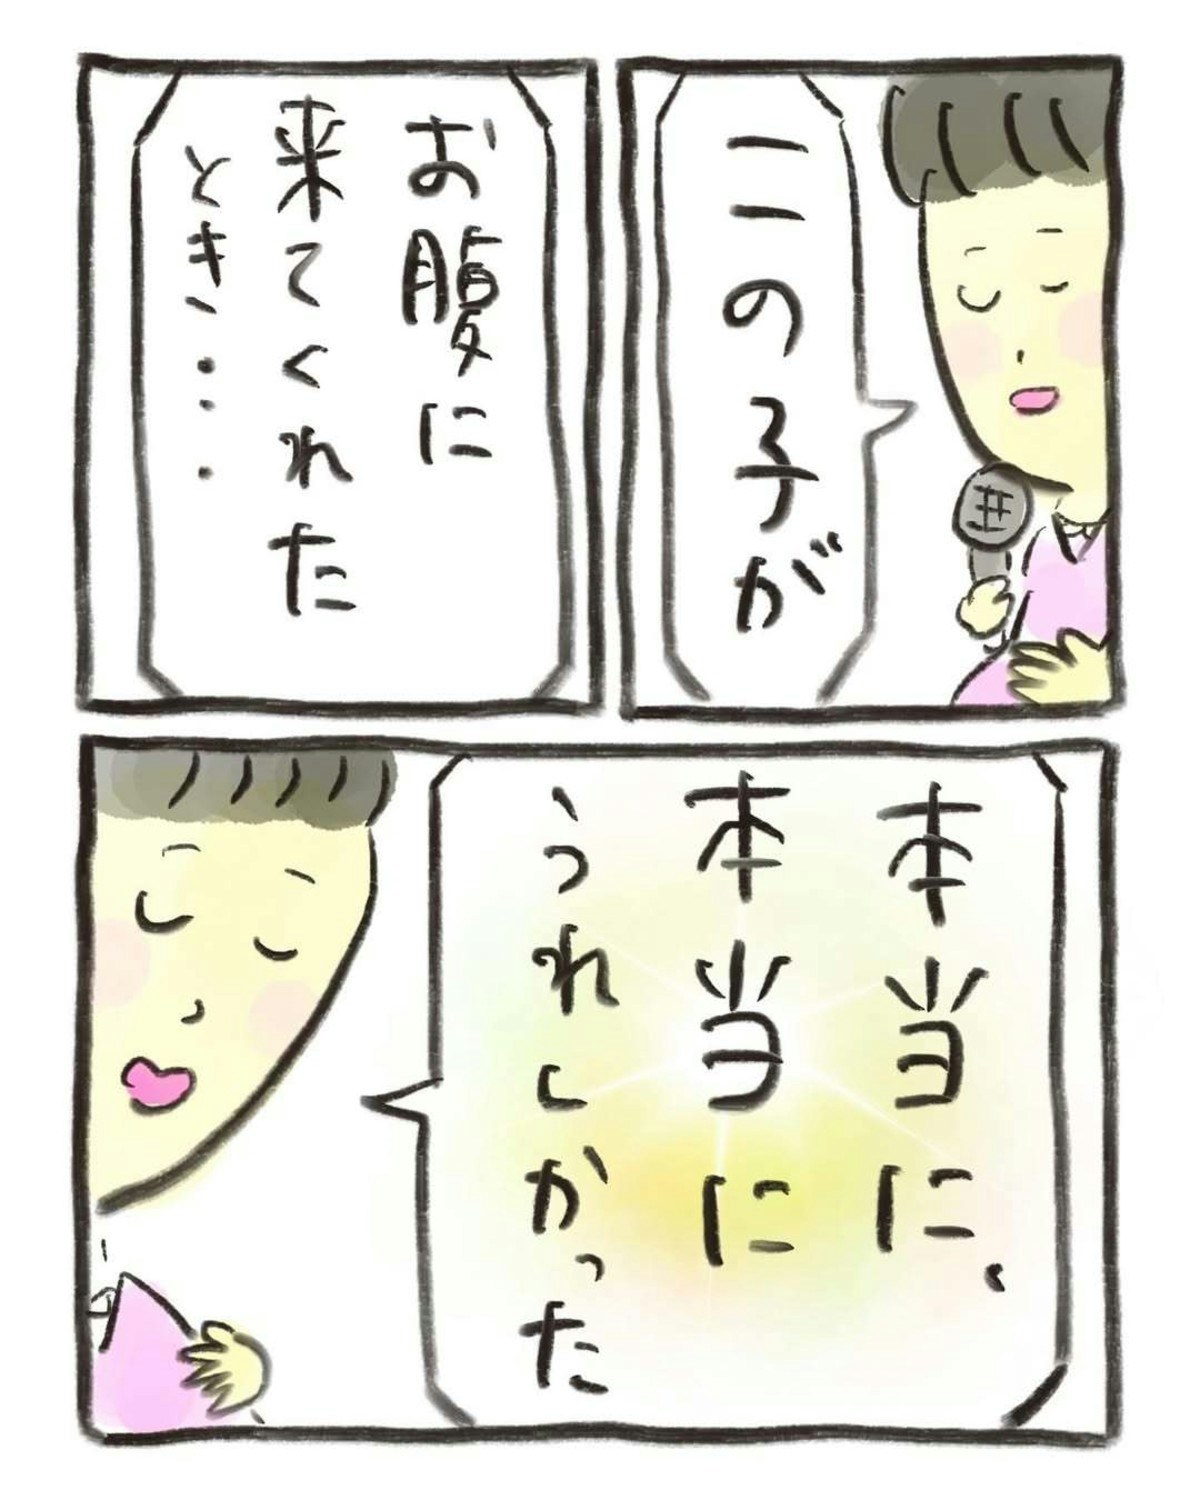 この子が
お腹に
来てくれた
とき…
本当に、
本当に
うれしかった